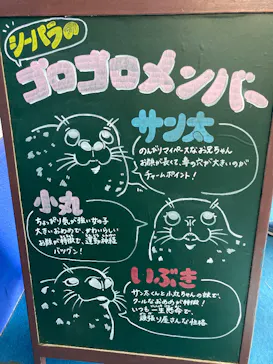 シーパラの
ゴロゴロメンバー
サン太
のんびりマイペースなお兄ちゃん
お顔が長くて、鼻の穴が大きいのが
チャームポイント!
小丸
ちょっぴり気が強い女の子
大きいおめめで、かわいらしい
お顔が特徴で、運動神経
バツグン!
いぶき
サン太くんと小丸ちゃんの妹で、
クールなおめめが特徴!
いつも一生懸命で、
頑張り屋さんな性格